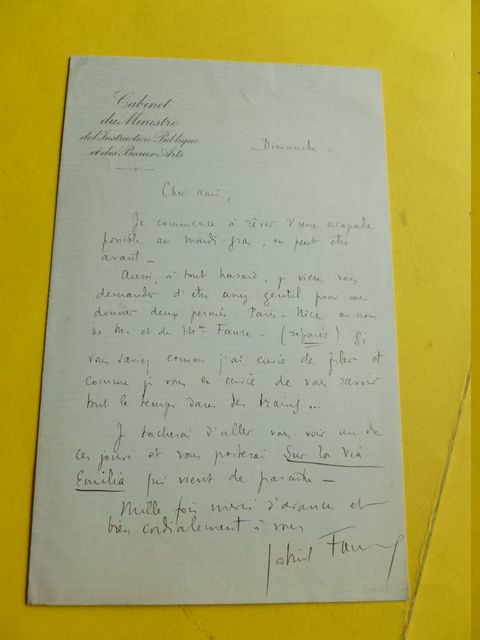 Cabinet
du Ministre
de l'Instruction Publique
et des Beaux-Arts
Dimanche -
Cher ami,
Je commence à rêver d'une escapade
possible au mardi-gras, ou peut être
avant -
Aussi, à tout hasard, je viens vous
demander d'être assez gentil pour me
donner deux permis Paris-Nice au nom
de M. et de Mme Faure - (séparés) Si
vous saviez comme j'ai envie de filer et
comme je vous en envie de vous savoir
tout le temps dans des trains...
Je tacherai d'aller vous voir un de
ces jours et vous porterai Sur la Via
Emilia qui vient de paraître -
Mille fois merci d'avance et
bien cordialement à vous
Gabriel Faure